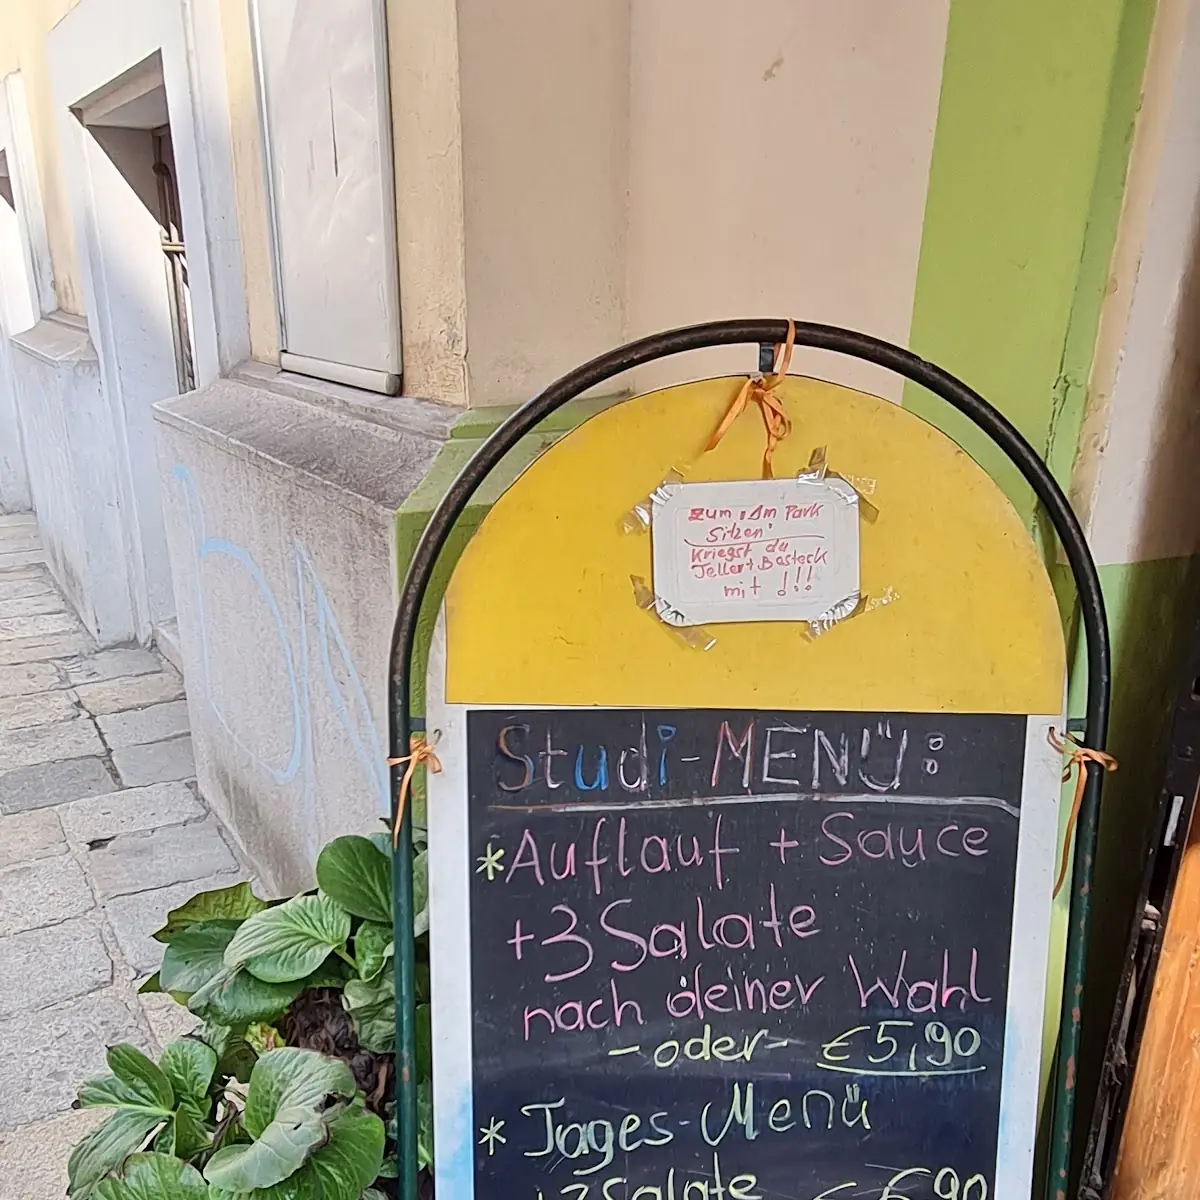 zum "Am Park
Sitzen"
Kriegst du
Teller+Besteck
mit !!!
Studi-MENÜ:
*Auflauf + Sauce
+3 Salate
nach deiner Wahl
-oder- €5,90
* Tages-Menü
+3 Salate €6,90